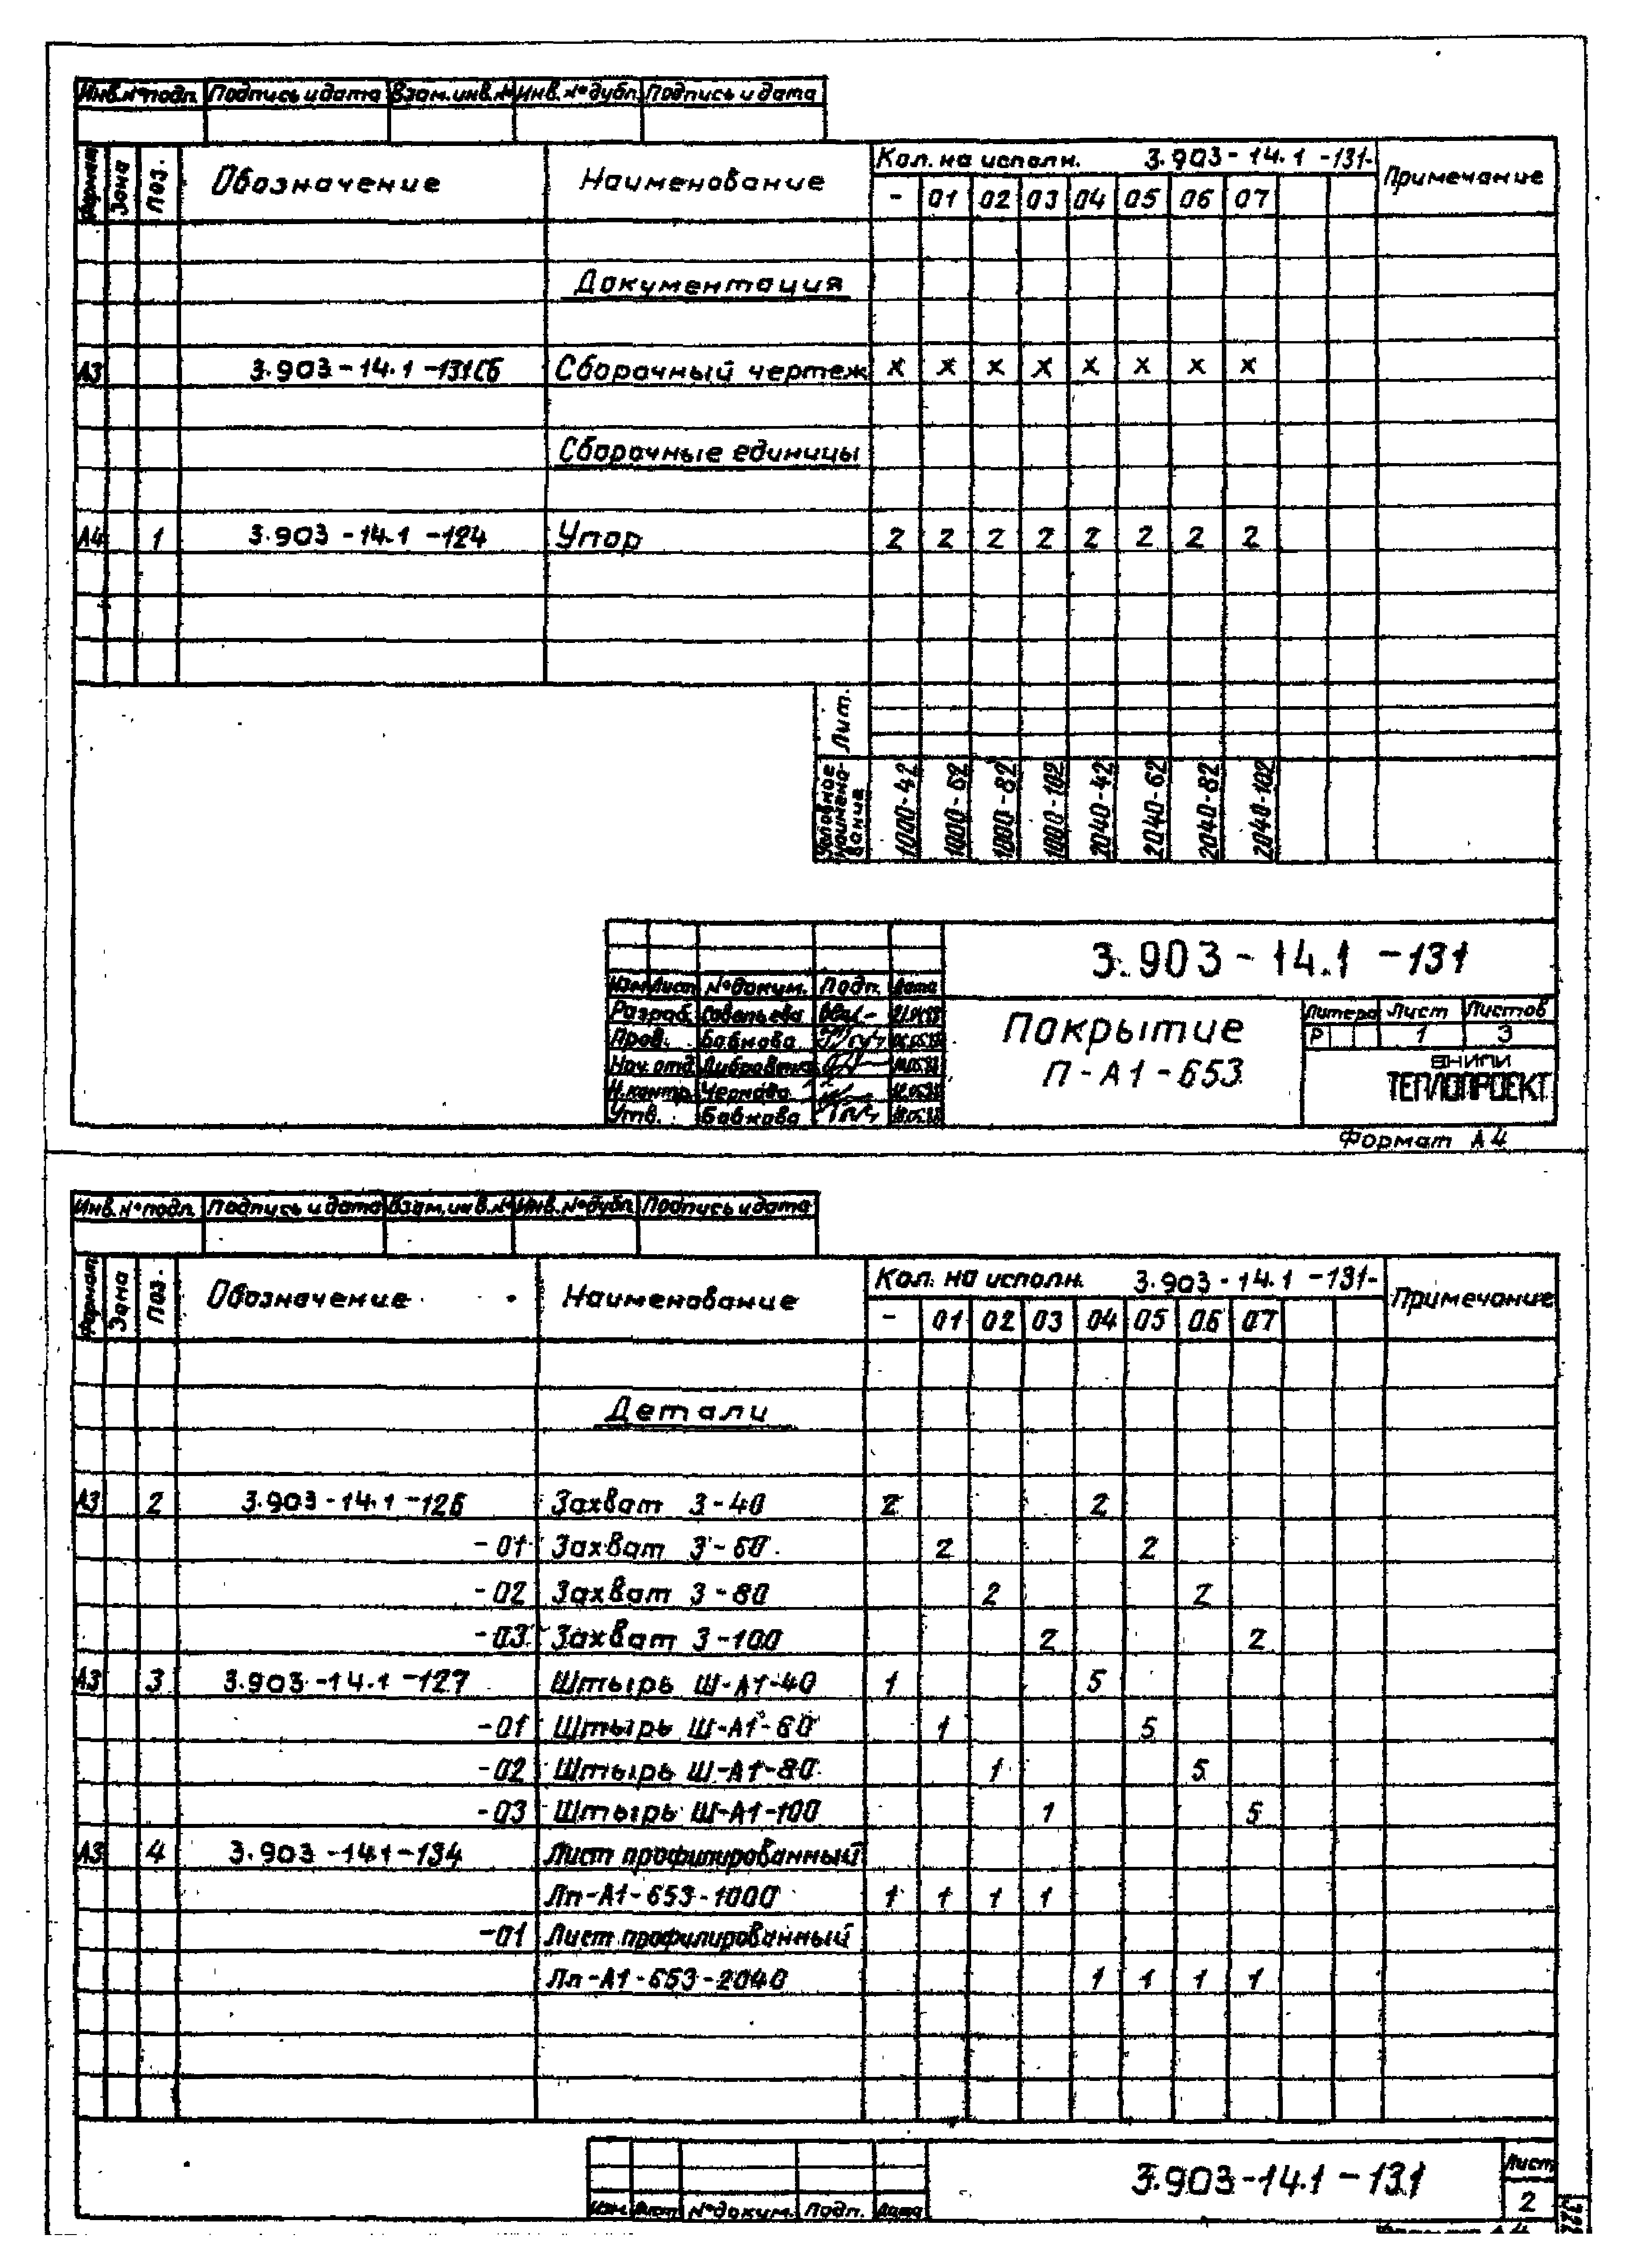 Инв.№подл. Подпись и дата Взам.инв.№ Инв.№дубл. Подпись и дата
Формат Зона Поз. Обозначение Наименование Кол. на исполн. 3.903-14.1-131- Примечание
- 01 02 03 04 05 06 07
Документация
А3 3.903-14.1-131СБ Сборочный чертеж х х х х х х х х
Сборочные единицы
А4 1 3.903-14.1-124 Упор 2 2 2 2 2 2 2 2
Лит.
Условное наименование 1000-42 1000-62 1000-82 1000-102 2040-42 2040-62 2040-82 2040-102
3.903-14.1-131
Изм Лист №докум. Подп. Дата
Разраб. Савельева
Пров. Бабкова
Нач.отд.
Н.контр. Чернова
Утв. Бабкова
Покрытие
П-А1-653
Литера Лист Листов
Р 1 3
ВНИПИ
ТЕПЛОПРОЕКТ
Формат А4
Инв.№подл. Подпись и дата Взам.инв.№ Инв.№дубл. Подпись и дата
Формат Зона Поз. Обозначение Наименование Кол. на исполн. 3.903-14.1-131- Примечание
- 01 02 03 04 05 06 07
Детали
А3 2 3.903-14.1-126 Захват З-40 2 2
-01 Захват З-60 2 2
-02 Захват З-80 2 2
-03 Захват З-100 2 2
А3 3 3.903-14.1-127 Штырь Ш-А1-40 1 5
-01 Штырь Ш-А1-60 1 5
-02 Штырь Ш-А1-80 1 5
-03 Штырь Ш-А1-100 1 5
А3 4 3.903-14.1-134 Лист профилированный
Лп-А1-653-1000 1 1 1 1
-01 Лист профилированный
Лп-А1-653-2040 1 1 1 1
3.903-14.1-131
Лист
2
Изм. Лист №докум. Подп. Дата